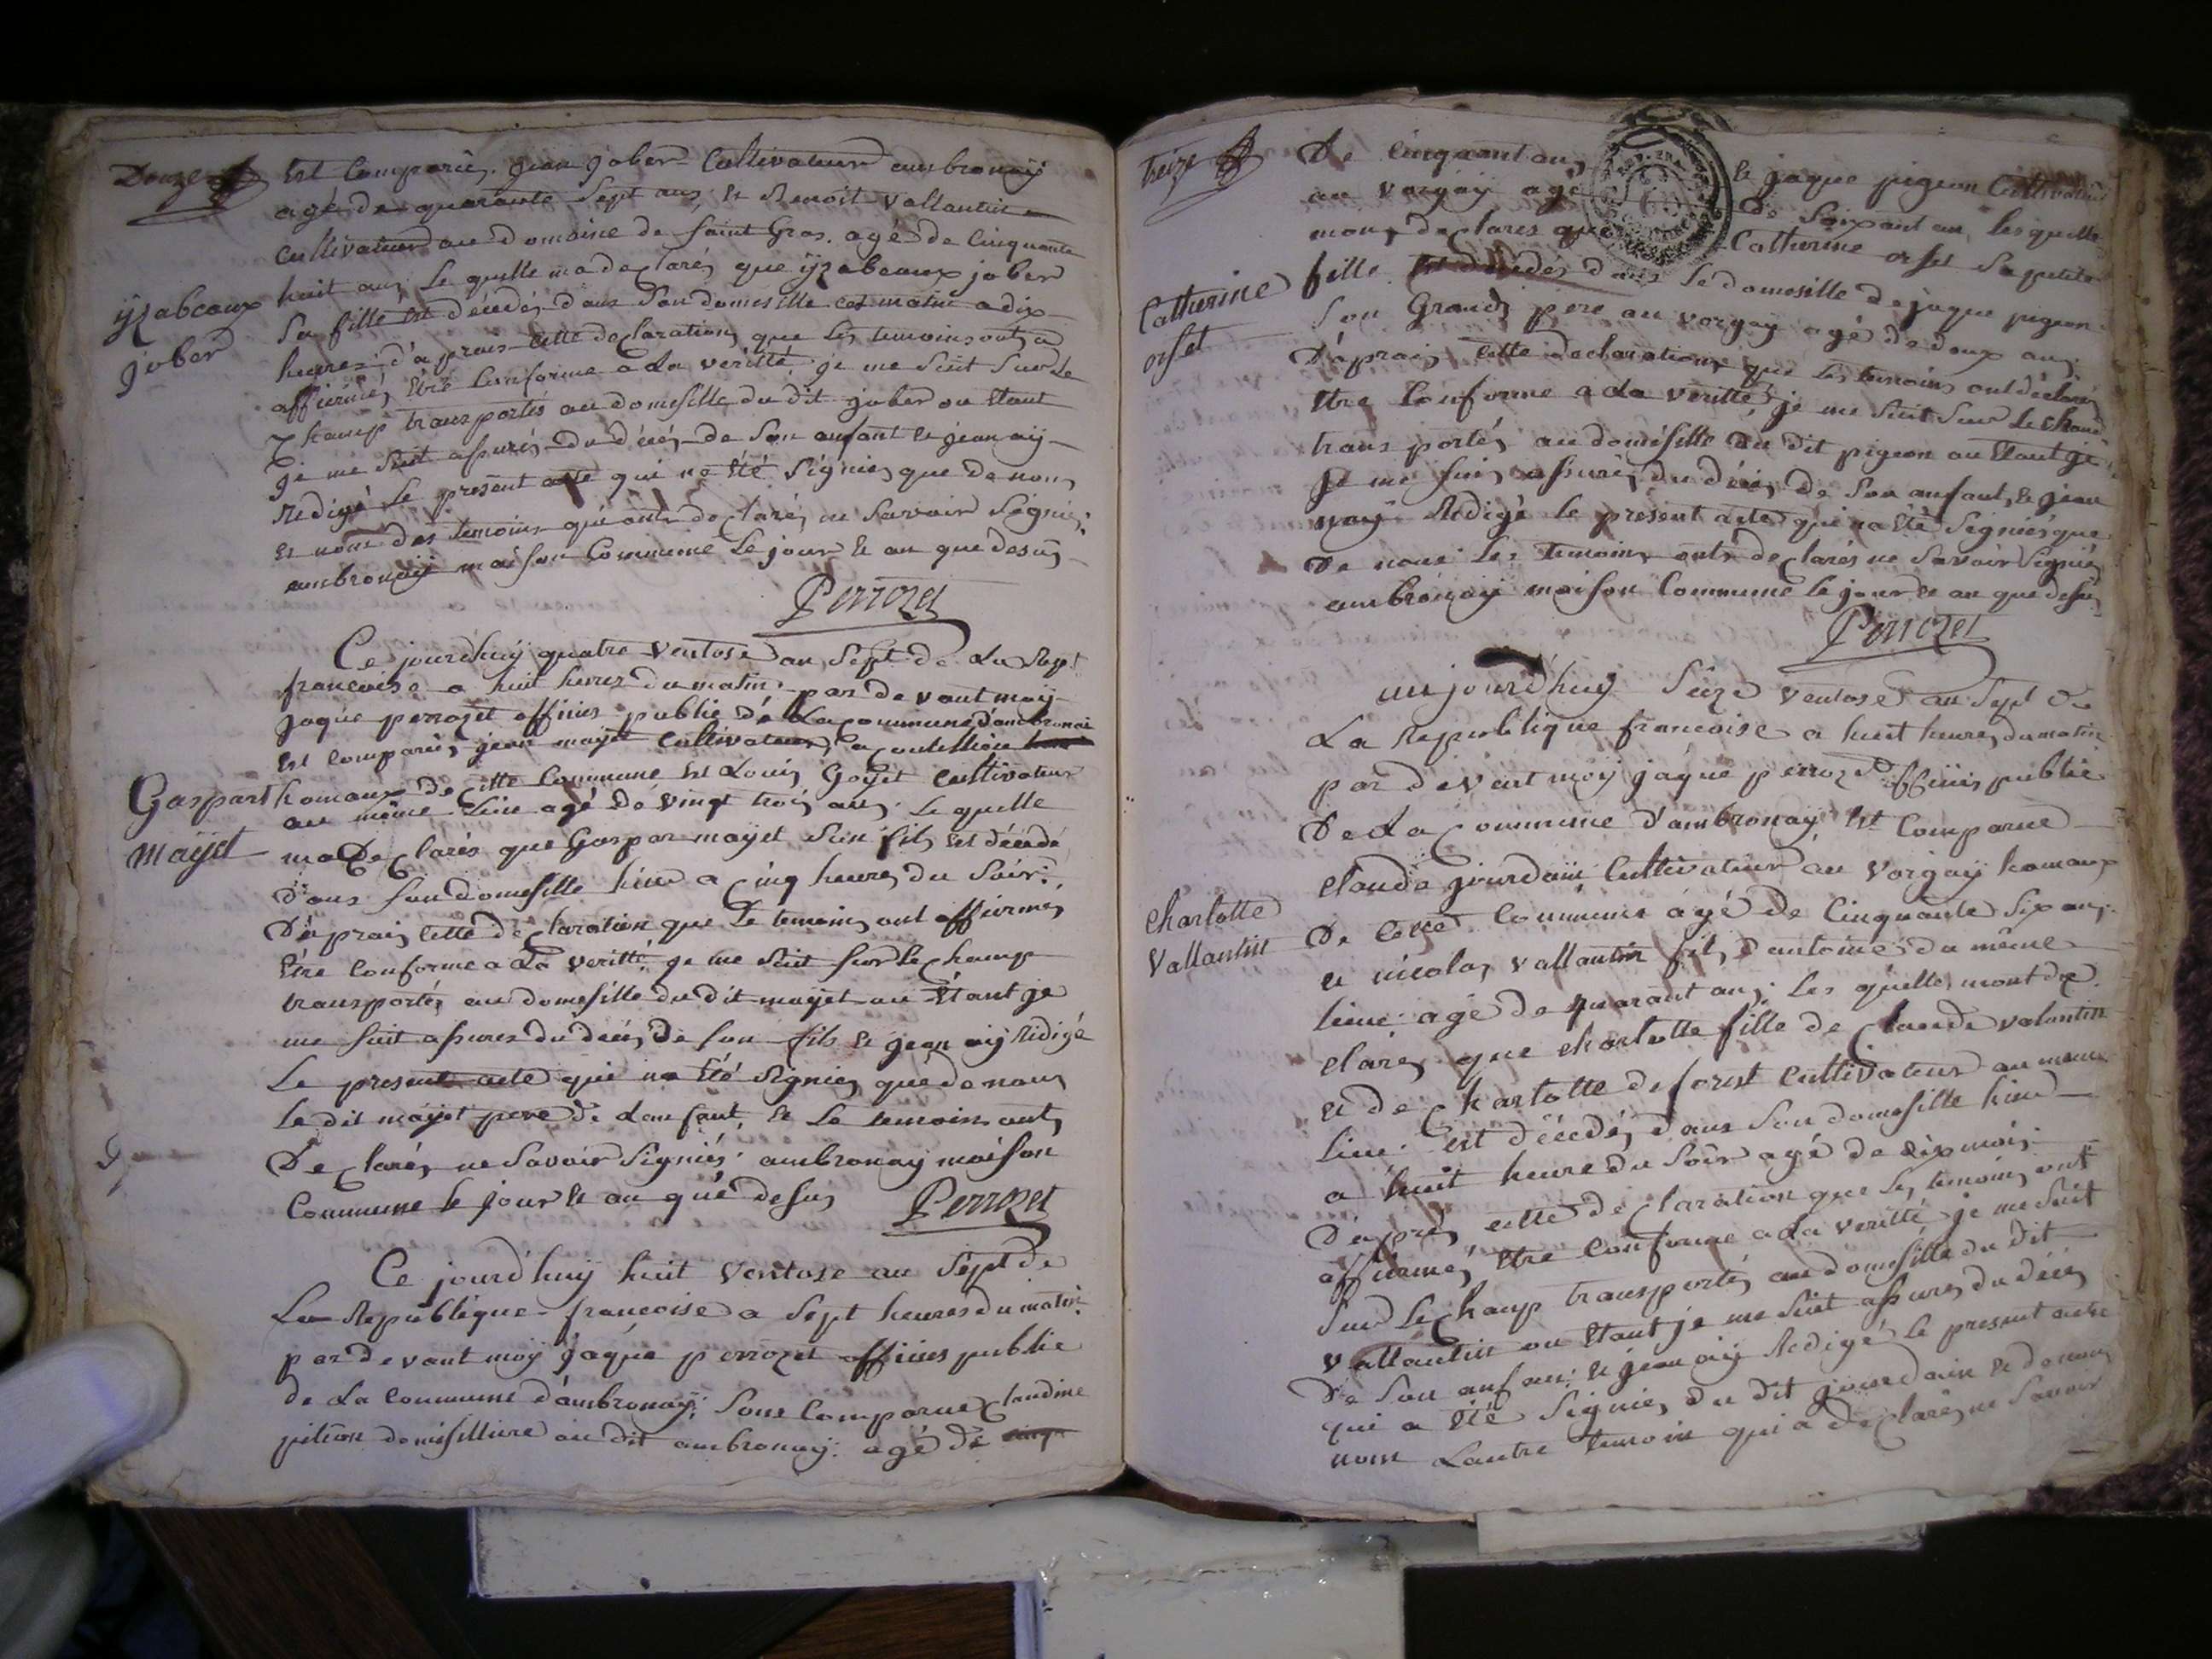 Douze
Est Comparüs jean jober Cultivateur ambronaÿ
agé de quarante Sept ans, et Benoit Vallantin
Cultivateur au domaine de saint Gras. agé de Cinquante
huit ans Le quelle ma declarés que ÿzabeaux jober
ÿzabeaux
jober
Sa fille est décédés dans Son domesille cet matin a dix
heures. d'a prais cette declaration que Les temoins ont
affirmés Etre Conforme a La véritté. je me Suit Sur Le
Champ transportés au domesille du dit jober ou Etant
je me Suit assurés du décés de Son anfant et jean aÿ
Redigé Le present acte qui na Eté Signiés que de nous
et non des temoins qui onts declarés ne Savoir Signiés
ambronaÿ maison Commune Le jour et an que desus
Perrozet
Ce jourdhuÿ quatre Ventose an Sept de La Rep.
francoise a huit heures du matin. par de vant moÿ
jaque perrozet officies public de La commune d'ambronai
Est Comparüs jean mayet Cultivateur a
Gaspart
mayet
hamaux de Cette Commune Et Louis Goÿet Cultivateur
au même Lieu agé de vingt trois ans. Le quelle
ma Declarés que Gaspar mayet Son fils Est décédé
dans Son domesille hier a Cinq heures du Soir.
D'aprais Cette declaration que Le temoins ont affirmés
Etre Conforme a La veritté. je me Suit sur le Champ
transportés au domesille du dit mayet ou Etant je
me Suit assures du decés de Son fils et jean aÿ Redigé
Le present acte qui na Eté Signiés que de nous
Le dit mayet pere de Lanfant, et Le temoins onts
Declarés ne Savoir Signiés. ambronay maison
Commune le jour et an que desus
Perrozet
Ce jourd'huÿ huit Ventose an Sept de
La Republique francoise a Sept heures du matin
par devant moÿ jaque perrozet officies public
de La Commune d'ambronaÿ; Sont Comparue Claudine
pition domisilliere au dit ambronaÿ. agé de
treize
De Cinquant ans et jaque pigeon Cultivateur
au vorgaÿ agé de Soixant ans, les quelle
mons declares que Catherine orset Sa petite
Catherine
orset
fille Est décédés dans Le domesille de jaque pigeon
Son Grand pere au vorgaÿ agé de deux ans.
D'aprais Cette declaration que Les temoins ont déclarés
Etre Conforme a La veritté, je me Suit Sur Le Champ
transportés au domésille du dit pigeon ou Etant je
je me suis assurés du décés de Son anfant, et jean
naÿ Redigé le present acte qui na Eté Signiés que
De nous Les temoins onts declarés ne Savoir Signiés
ambronay maison Commune le jour et an que desus
Perrozet
aujourd'huÿ Seize Ventose an Sept de
La Republique francoise a huit heures du matin
par devant moÿ jaque perrozet officies public
De La Commune d'ambronay Est Comparue
Claude jourdain Cultivateur au vorgaÿ hamaux
Charlotte
Vallantin
De Cette Commune agé de Cinquante Six ans.
et nicolas vallantin fils d'antoine du même
Lieu. agé de quarant ans. Les quelles mont de
Clares que Charlotte fille de Claude valantin
et de Charlotte deforest Cultivateur au meme
Lieu. est décédés dans Son domesille hier
a huit heure du Soir agé de dix mois.
D'aprés cette declaration que Les temoins ont
affirmés Etre Conforme a La veritté je me Suit
Sur Le Champ transportés au domesille du dit
Vallantin ou Etant je me Suit assures du décés
De Son anfant et jean aÿ Redigé Le present acte
qui a Eté Signies du dit jourdain et de nous
non Lautre temoin qui a declarés ne Savoir